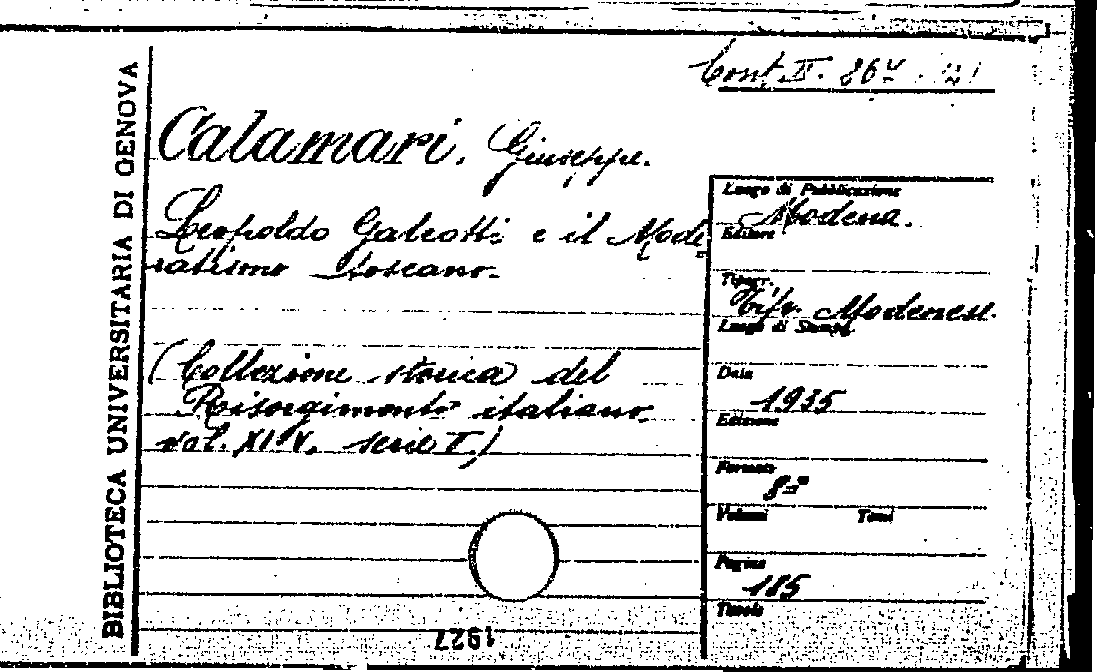 BIBLIOTECA UNIVERSITARIA DI GENOVA
Cont. II. 867. 21
Calamari, Giuseppe.
Leopoldo Galeotti e il Mode
ratismo toscano.
(Collezione storica del
Risorgimento italiano
vol. XIV, serie I.)
Luogo di Pubblicazione
Modena.
Editore
Tipogr.
Tip. Modenese.
Luogo di Stampa
Data
1935
Edizione
Formato
8º
Volumi Tomi
Pagine
185
Tavole
1927